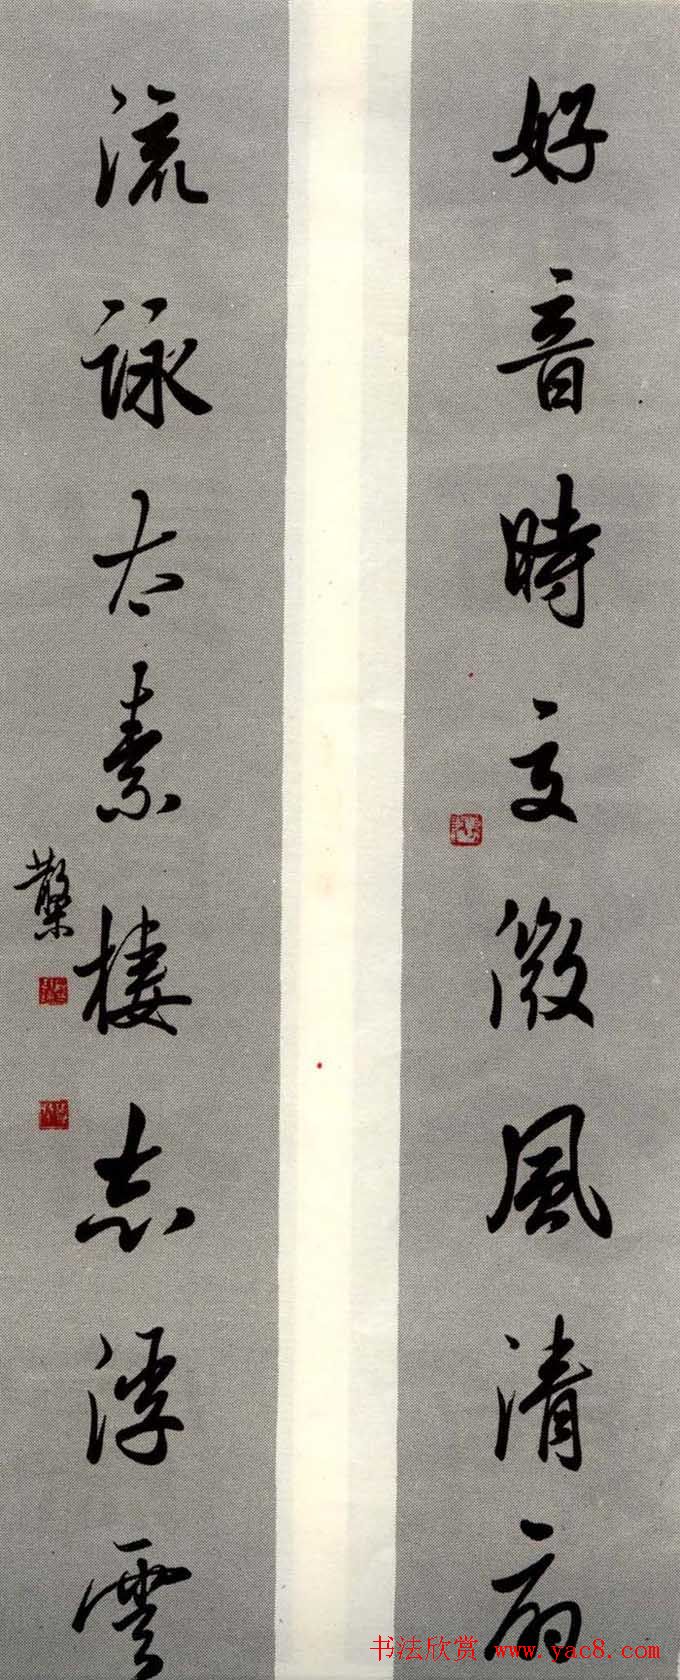 好音時交微風清扇
流詠太素棲志浮雲
书法欣赏 www.yac8.com